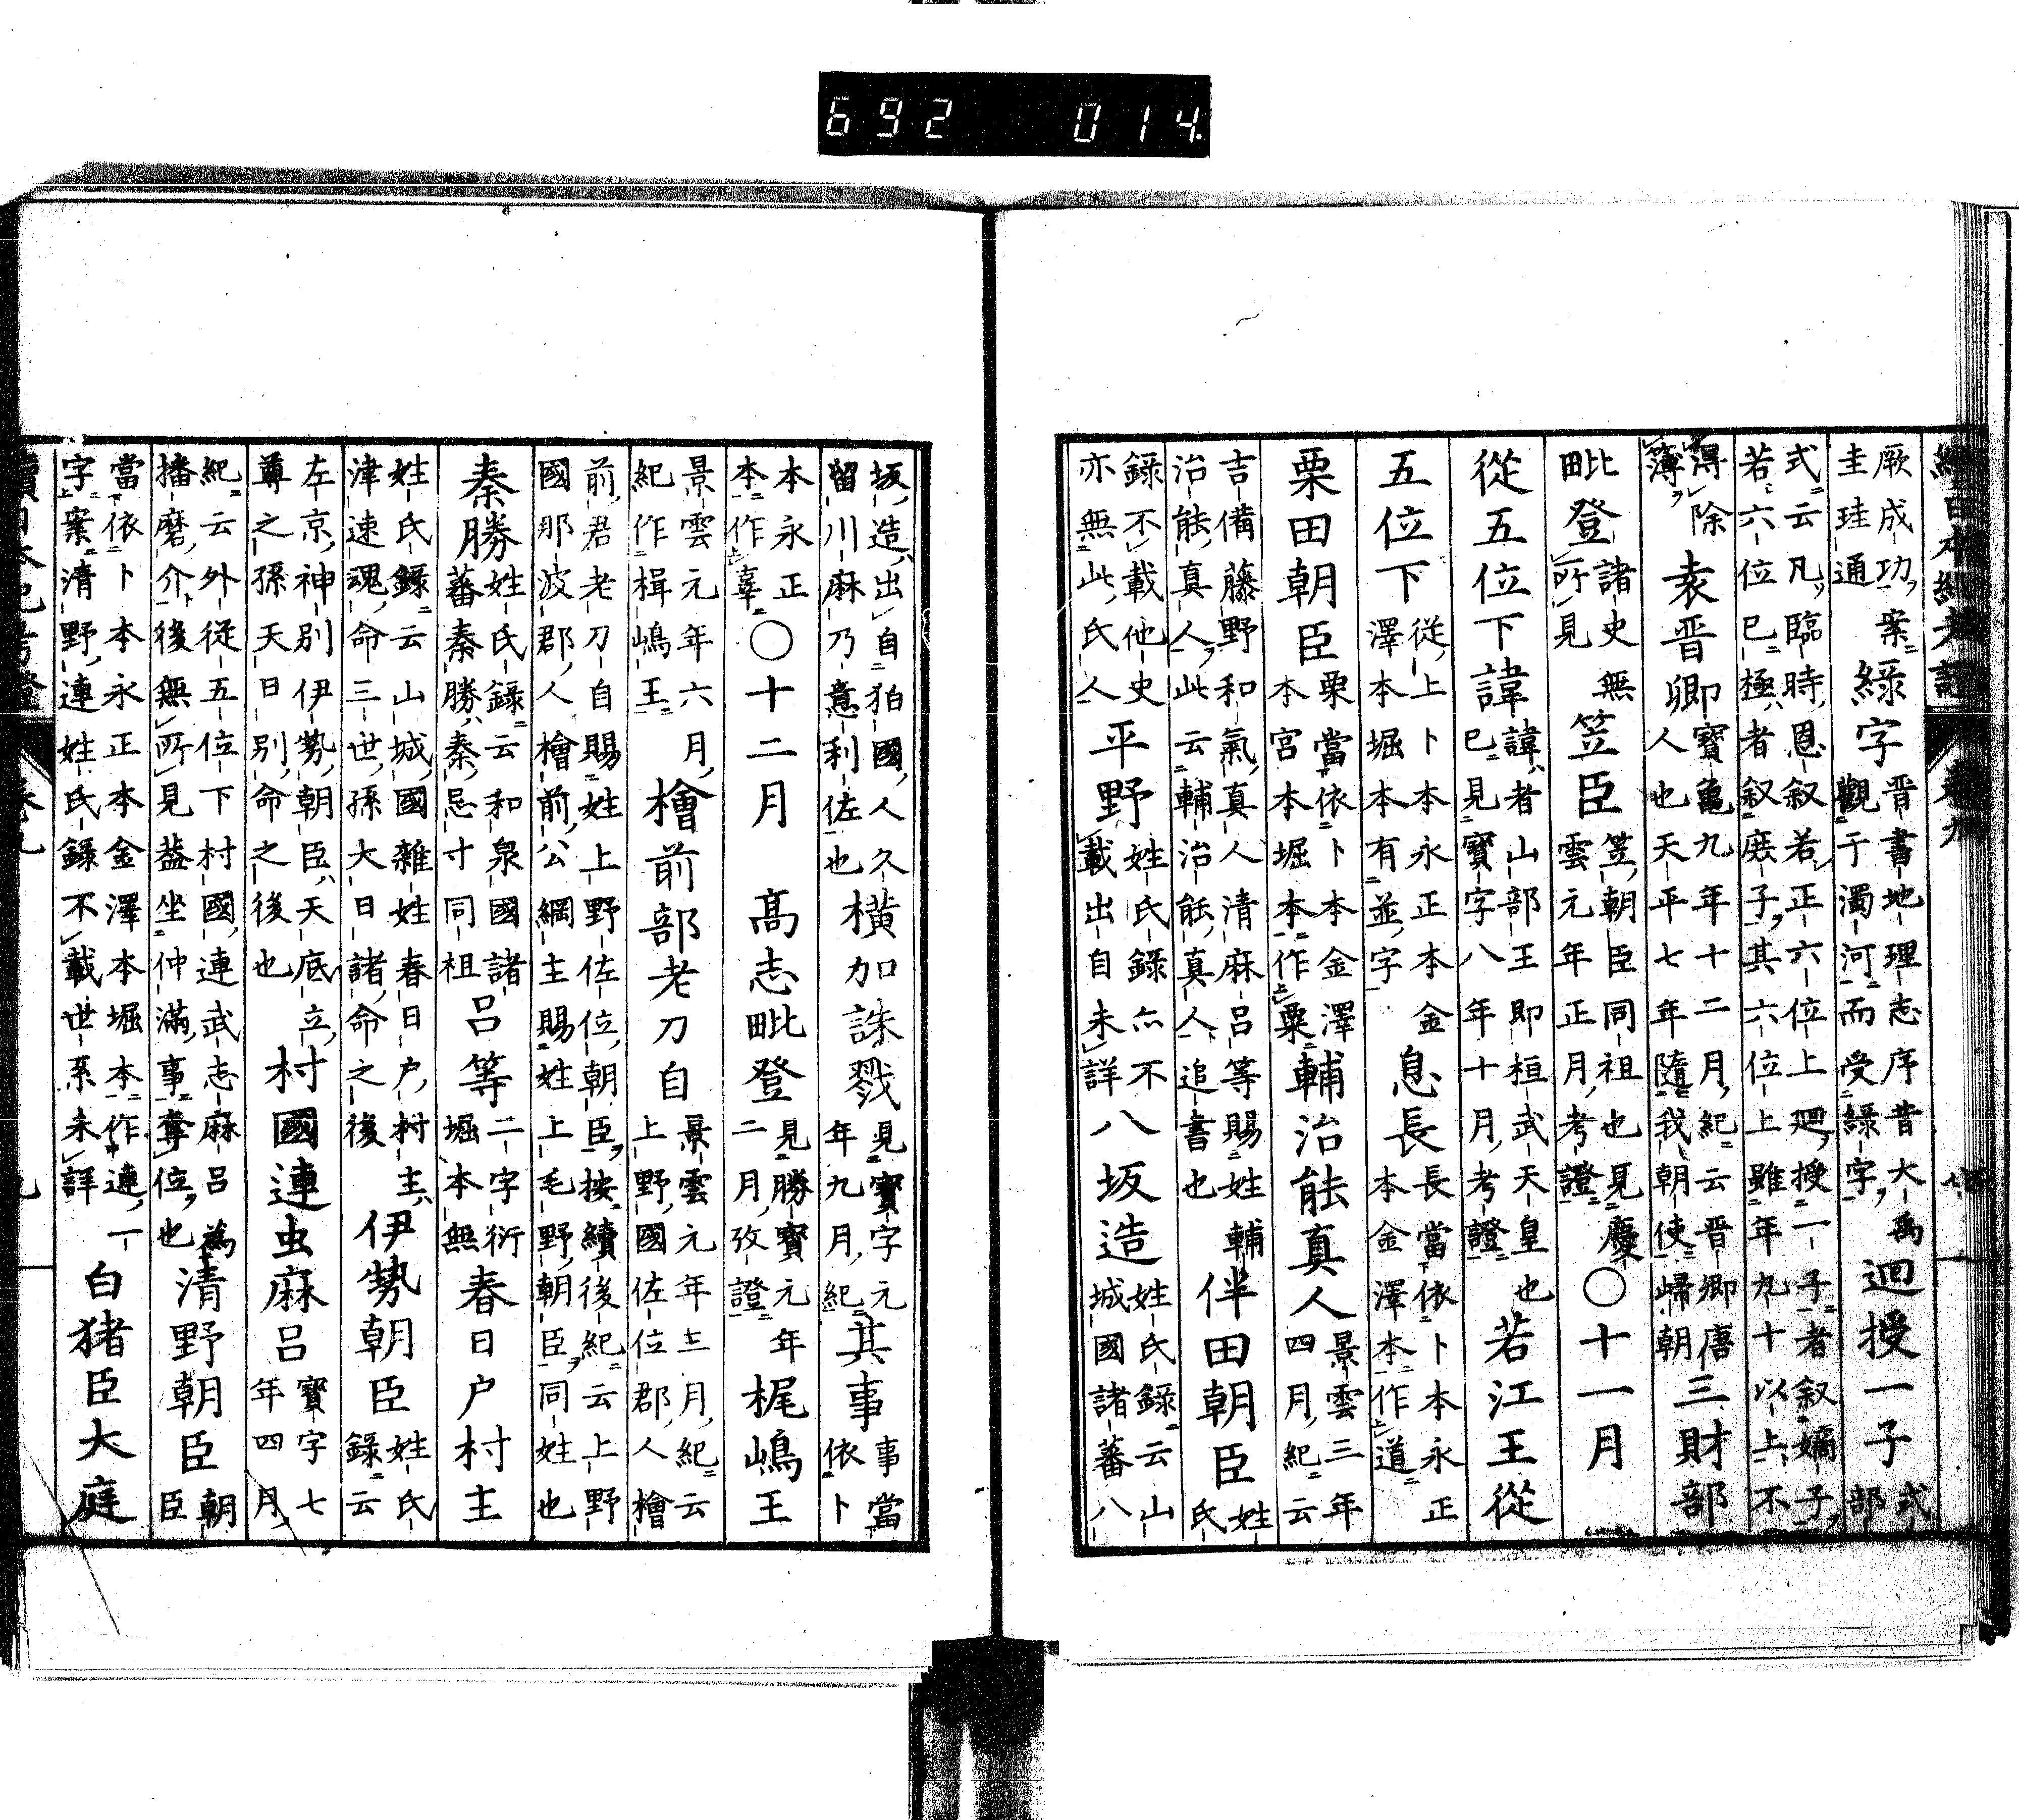 692 014
續日本紀考證
卷九
厥成功、案
圭珪通
綠字
晋書地理志序昔大禹
觀于濁河而受綠字
迴授一子
式
部
式云凡臨時恩叙若正六位上廻授一子者叙嫡子
若六位已極者叙庶子其六位上雖年九十以上不
得除
簿
袁晋卿
寶龜九年十二月紀云晋卿唐
人也天平七年隨我朝使歸朝
三財部
毗登
諸史無
所見
笠臣
笠朝臣同祖也見慶
雲元年正月考證
〇十一月
從五位下諱
諱者山部王即桓武天皇也
已見寶字八年十月考證
若江王從
五位下
從上卜本永正本金
澤本堀本有並字
息長
長當依卜本永正
本金澤本作道
栗田朝臣
粟當依卜本金澤
本宮本堀本本作粟
輔治能真人
景雲三年
四月紀云
吉備藤野和氣真人清麻呂等賜姓輔
治能真人此云輔治能真人追書也
伴田朝臣
姓
氏
錄不載他史
亦無此氏人
平野
姓氏錄亦不
載出自未詳
八坂造
姓氏錄云山
城國諸蕃八
坂造出自狛國人久
留川麻乃意利佐也
橫加誅戮
見寶字元
年九月紀
其事
事當
依卜
本永正
本作辜
〇十二月
高志毗登
見勝寶元年
二月攷證
梶嶋王
景雲元年六月
紀作楫嶋王
檜前部老刀自
景雲元年三月紀云
上野國佐位郡人檜
前君老刀自賜姓上野佐位朝臣按續後紀云上野
國那波郡人檜前公綱主賜姓上毛野朝臣同姓也
秦勝
姓氏錄云和泉國諸
蕃秦勝秦忌寸同祖
呂等
二字衍
堀本無
春日戶村主
姓氏錄云山城國雜姓春日戶村主
津速魂命三世孫大日諸命之後
伊勢朝臣
姓氏
錄云
左京神別伊勢朝臣天底立
尊之孫天日別命之後也
村國連虫麻呂
寶字七
年四月
紀云外從五位下村國連武志麻呂為
播磨介後無所見蓋坐仲滿事奪位也
清野朝臣
朝
臣
當依卜本永正本金澤本堀本作連一
字案清野連姓氏錄不載世系未詳
白猪臣大庭
續日本紀考證
卷九
九